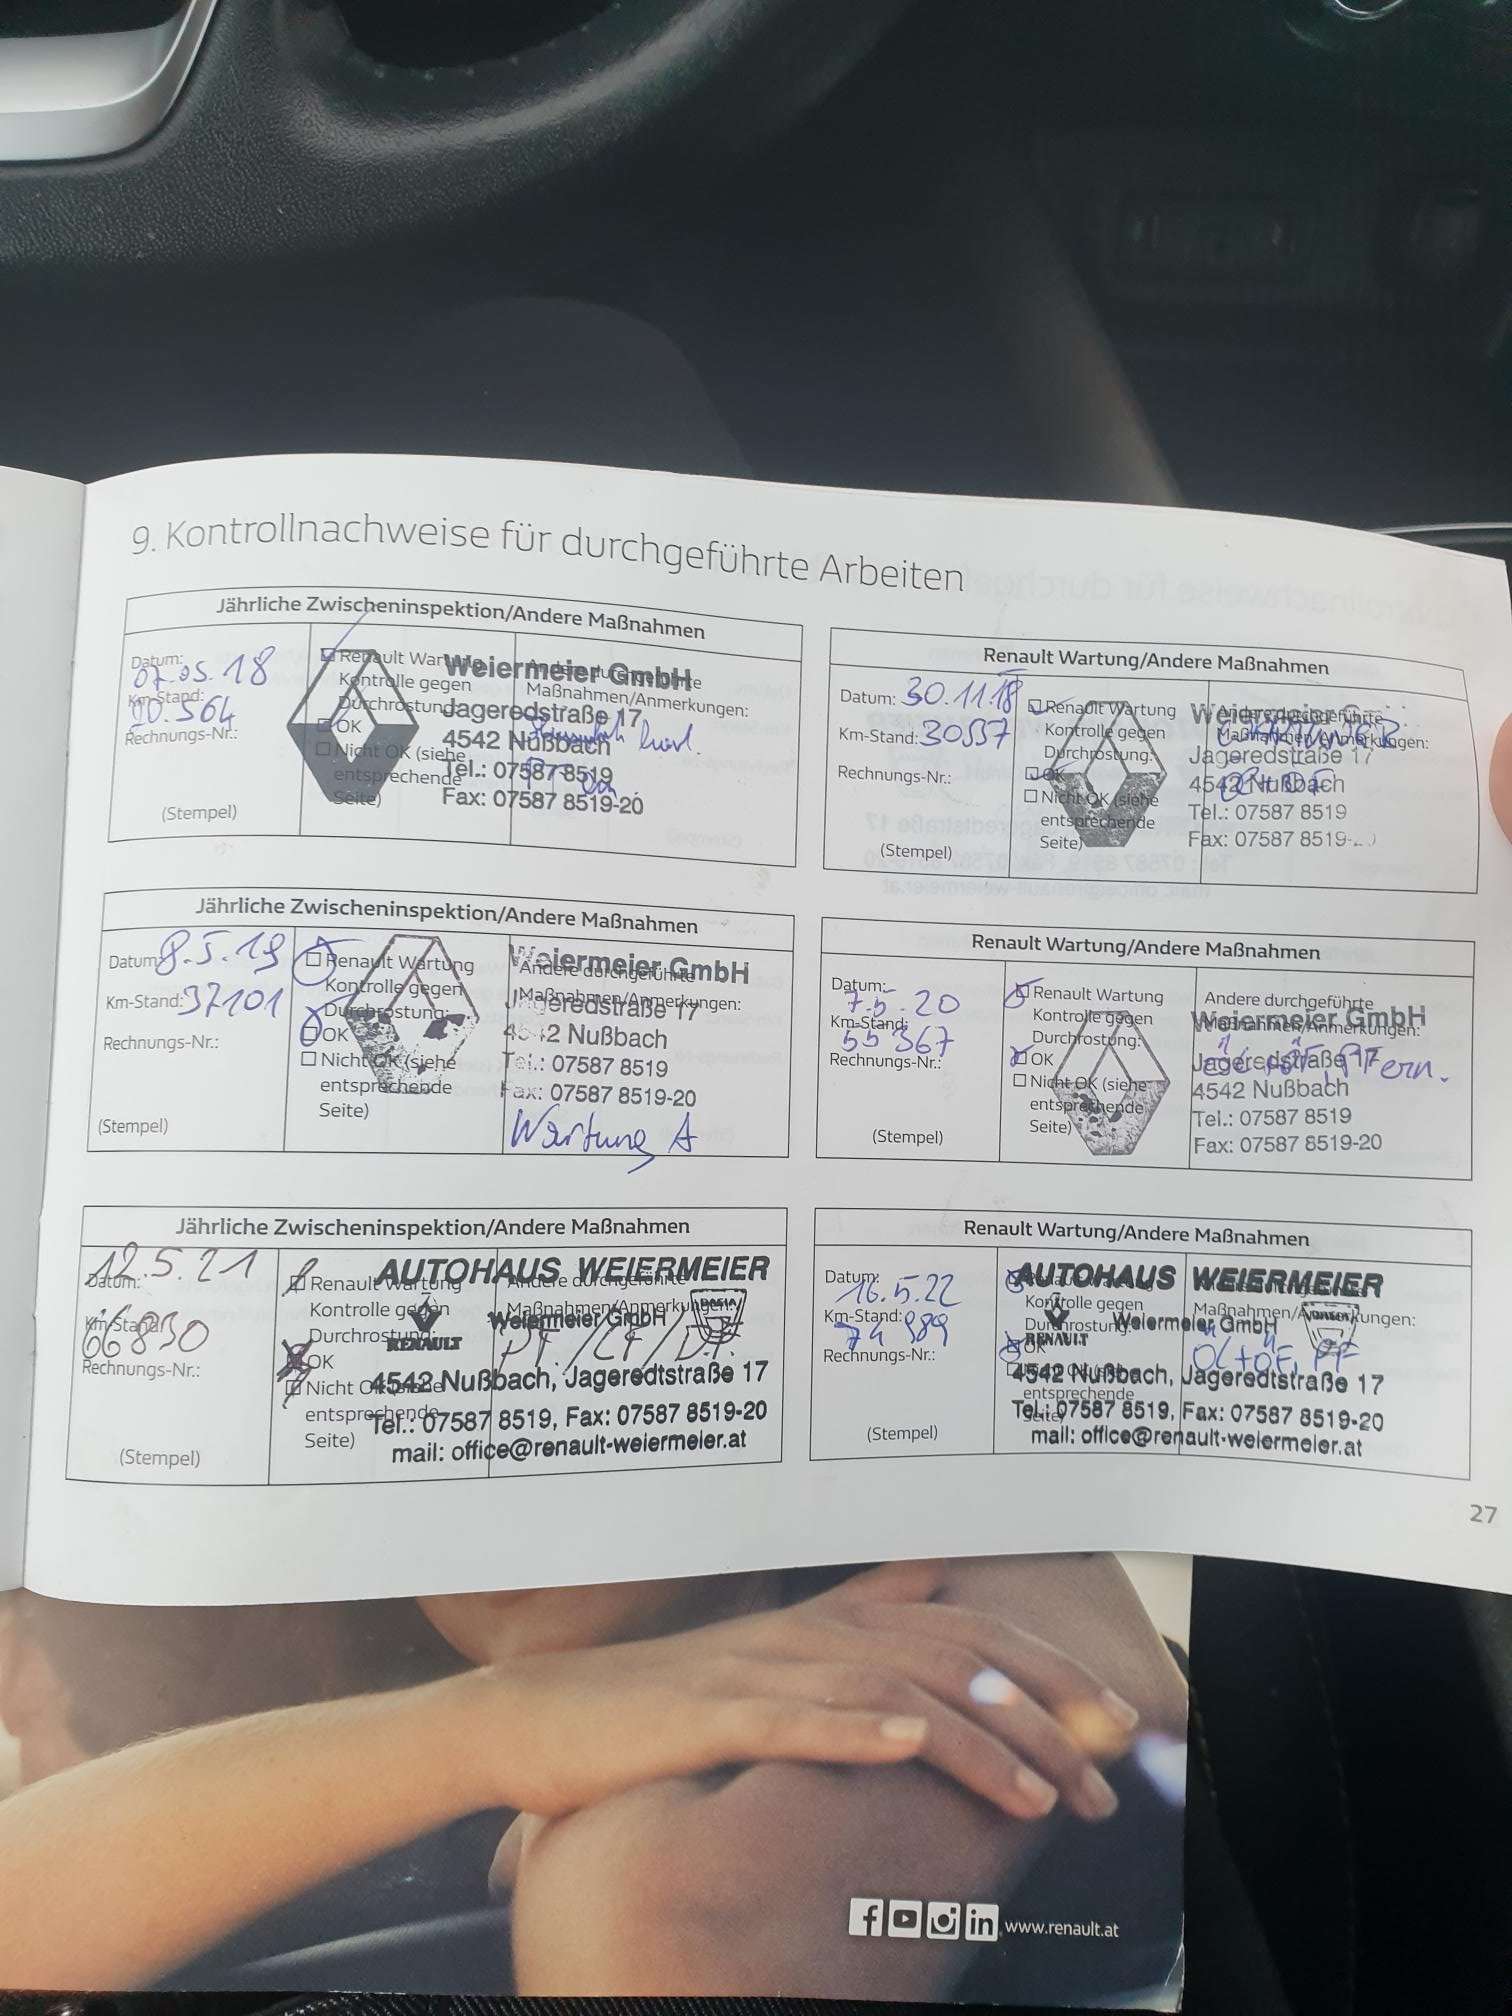 9. Kontrollnachweise für durchgeführte Arbeiten
Jährliche Zwischeninspektion/Andere Maßnahmen
Datum:
07.05.18
Km-Stand:
20.564
Rechnungs-Nr.:
(Stempel)
Renault Wartung
Kontrolle gegen
Durchrostung:
OK
Nicht OK (siehe
entsprechende
Seite)
Andere durchgeführte
Maßnahmen/Anmerkungen:
Weiermeier GmbH
Jageredstraße 17
4542 Nußbach
Tel.: 07587 8519
Fax: 07587 8519-20
Renault Wartung/Andere Maßnahmen
Datum: 30.11.18
Km-Stand: 30557
Rechnungs-Nr.:
(Stempel)
Renault Wartung
Kontrolle gegen
Durchrostung:
OK
Nicht OK (siehe
entsprechende
Seite)
Andere durchgeführte
Maßnahmen/Anmerkungen:
Weiermeier G
Jageredstraße 17
4542 Nußbach
Tel.: 07587 8519
Fax: 07587 8519-
Jährliche Zwischeninspektion/Andere Maßnahmen
Datum: 8.5.19
Km-Stand: 37101
Rechnungs-Nr.:
(Stempel)
Renault Wartung
Kontrolle gegen
Durchrostung:
OK
Nicht OK (siehe
entsprechende
Seite)
Andere durchgeführte
Maßnahmen/Anmerkungen:
Weiermeier GmbH
Jageredstraße 17
4542 Nußbach
Tel.: 07587 8519
Fax: 07587 8519-20
Wartung A
Renault Wartung/Andere Maßnahmen
Datum:
7.5.20
Km-Stand:
55367
Rechnungs-Nr.:
(Stempel)
Renault Wartung
Kontrolle gegen
Durchrostung:
OK
Nicht OK (siehe
entsprechende
Seite)
Andere durchgeführte
Maßnahmen/Anmerkungen:
Weiermeier GmbH
Jageredstraße 17
4542 Nußbach
Tel.: 07587 8519
Fax: 07587 8519-20
Jährliche Zwischeninspektion/Andere Maßnahmen
Datum:
12.5.21
Km-Stand:
66830
Rechnungs-Nr.:
(Stempel)
Renault Wartung
Kontrolle gegen
Durchrostung:
OK
Nicht OK (siehe
entsprechende
Seite)
Andere durchgeführte
Maßnahmen/Anmerkungen:
AUTOHAUS WEIERMEIER
Weiermeier GmbH
RENAULT
DACIA
4542 Nußbach, Jageredtstraße 17
Tel.: 07587 8519, Fax: 07587 8519-20
mail: office@renault-weiermeier.at
Renault Wartung/Andere Maßnahmen
Datum:
16.5.22
Km-Stand:
74989
Rechnungs-Nr.:
(Stempel)
Renault Wartung
Kontrolle gegen
Durchrostung:
OK
entsprechende
Seite)
Maßnahmen/Anmerkungen:
AUTOHAUS WEIERMEIER
Weiermeier GmbH
RENAULT
ÖL+ÖF, PF
4542 Nußbach, Jageredtstraße 17
Tel.: 07587 8519, Fax: 07587 8519-20
mail: office@renault-weiermeier.at
27
www.renault.at